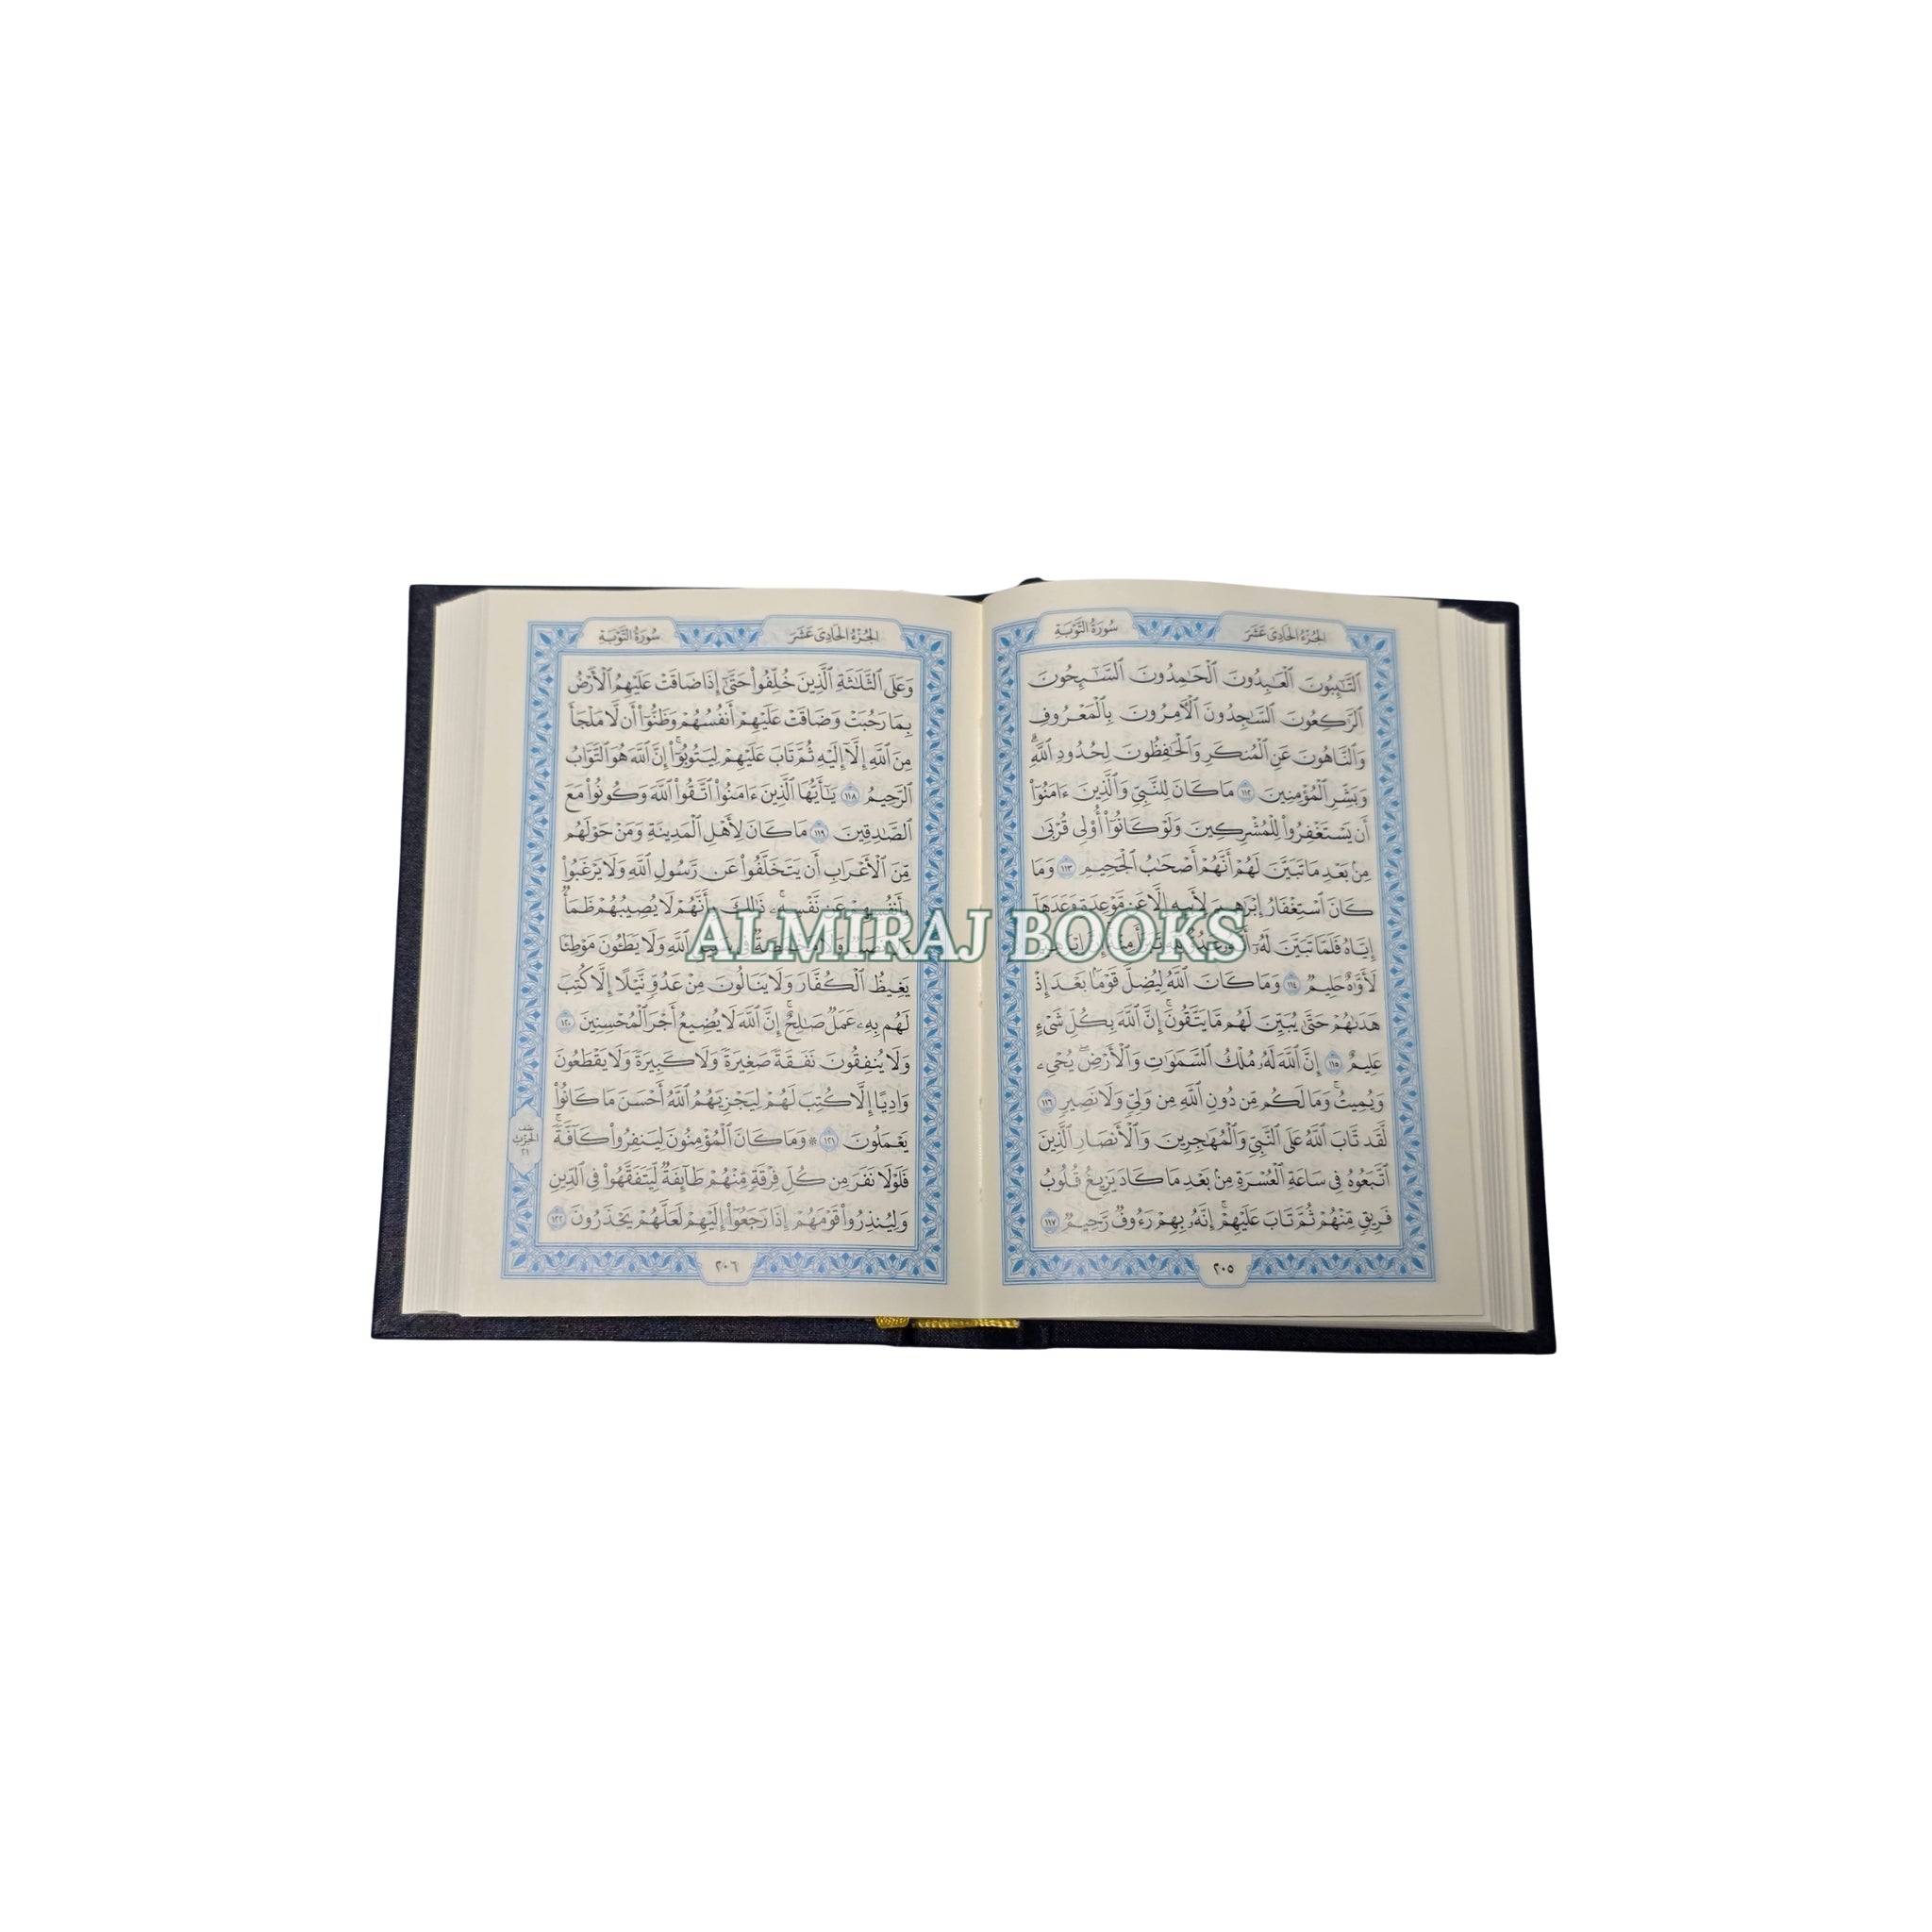 الجُزْءُ الحَادِيَ عَشَرَ سُورَةُ التَّوْبَةِ
ٱلتَّٰٓئِبُونَ ٱلْعَٰبِدُونَ ٱلْحَٰمِدُونَ ٱلسَّٰٓئِحُونَ
ٱلرَّٰكِعُونَ ٱلسَّٰجِدُونَ ٱلْأٓمِرُونَ بِٱلْمَعْرُوفِ
وَٱلنَّاهُونَ عَنِ ٱلْمُنكَرِ وَٱلْحَٰفِظُونَ لِحُدُودِ ٱللَّهِۗ
وَبَشِّرِ ٱلْمُؤْمِنِينَ ١١٢ مَا كَانَ لِلنَّبِيِّ وَٱلَّذِينَ ءَامَنُوٓا۟
أَن يَسْتَغْفِرُوا۟ لِلْمُشْرِكِينَ وَلَوْ كَانُوٓا۟ أُو۟لِي قُرْبَىٰ
مِنۢ بَعْدِ مَا تَبَيَّنَ لَهُمْ أَنَّهُمْ أَصْحَٰبُ ٱلْجَحِيمِ ١١٣ وَمَا
كَانَ ٱسْتِغْفَارُ إِبْرَٰهِيمَ لِأَبِيهِ إِلَّا عَن مَّوْعِدَةٍ وَعَدَهَآ
إِيَّاهُ فَلَمَّا تَبَيَّنَ لَهُۥٓ أَنَّهُۥ عَدُوٌّ لِّلَّهِ تَبَرَّأَ مِنْهُ
لَأَوَّٰهٌ حَلِيمٌ ١١٤ وَمَا كَانَ ٱللَّهُ لِيُضِلَّ قَوْمًۢا بَعْدَ إِذْ
هَدَىٰهُمْ حَتَّىٰ يُبَيِّنَ لَهُم مَّا يَتَّقُونَۚ إِنَّ ٱللَّهَ بِكُلِّ شَيْءٍ
عَلِيمٌ ١١٥ إِنَّ ٱللَّهَ لَهُۥ مُلْكُ ٱلسَّمَٰوَٰتِ وَٱلْأَرْضِۖ يُحْيِۦ
وَيُمِيتُۚ وَمَا لَكُم مِّن دُونِ ٱللَّهِ مِن وَلِيٍّ وَلَا نَصِيرٍ ١١٦
لَّقَد تَّابَ ٱللَّهُ عَلَى ٱلنَّبِيِّ وَٱلْمُهَٰجِرِينَ وَٱلْأَنصَارِ ٱلَّذِينَ
ٱتَّبَعُوهُ فِي سَاعَةِ ٱلْعُسْرَةِ مِنۢ بَعْدِ مَا كَادَ يَزِيغُ قُلُوبُ
فَرِيقٍ مِّنْهُمْ ثُمَّ تَابَ عَلَيْهِمْۚ إِنَّهُۥ بِهِمْ رَءُوفٌ رَّحِيمٌ ١١٧
٢٠٥
الجُزْءُ الحَادِيَ عَشَرَ سُورَةُ التَّوْبَةِ
وَعَلَى ٱلثَّلَٰثَةِ ٱلَّذِينَ خُلِّفُوا۟ حَتَّىٰٓ إِذَا ضَاقَتْ عَلَيْهِمُ ٱلْأَرْضُ
بِمَا رَحُبَتْ وَضَاقَتْ عَلَيْهِمْ أَنفُسُهُمْ وَظَنُّوٓا۟ أَن لَّا مَلْجَأَ
مِنَ ٱللَّهِ إِلَّآ إِلَيْهِ ثُمَّ تَابَ عَلَيْهِمْ لِيَتُوبُوٓا۟ۚ إِنَّ ٱللَّهَ هُوَ ٱلتَّوَّابُ
ٱلرَّحِيمُ ١١٨ يَٰٓأَيُّهَا ٱلَّذِينَ ءَامَنُوا۟ ٱتَّقُوا۟ ٱللَّهَ وَكُونُوا۟ مَعَ
ٱلصَّٰدِقِينَ ١١٩ مَا كَانَ لِأَهْلِ ٱلْمَدِينَةِ وَمَنْ حَوْلَهُم
مِّنَ ٱلْأَعْرَابِ أَن يَتَخَلَّفُوا۟ عَن رَّسُولِ ٱللَّهِ وَلَا يَرْغَبُوا۟
بِأَنفُسِهِمْ عَن نَّفْسِهِۦۚ ذَٰلِكَ بِأَنَّهُمْ لَا يُصِيبُهُمْ ظَمَأٌ
وَلَا نَصَبٌ وَلَا مَخْمَصَةٌ فِي سَبِيلِ ٱللَّهِ وَلَا يَطَـُٔونَ مَوْطِئًا
يَغِيظُ ٱلْكُفَّارَ وَلَا يَنَالُونَ مِنْ عَدُوٍّ نَّيْلًا إِلَّا كُتِبَ
لَهُم بِهِۦ عَمَلٌ صَٰلِحٌۚ إِنَّ ٱللَّهَ لَا يُضِيعُ أَجْرَ ٱلْمُحْسِنِينَ ١٢٠
وَلَا يُنفِقُونَ نَفَقَةً صَغِيرَةً وَلَا كَبِيرَةً وَلَا يَقْطَعُونَ
وَادِيًا إِلَّا كُتِبَ لَهُمْ لِيَجْزِيَهُمُ ٱللَّهُ أَحْسَنَ مَا كَانُوا۟
يَعْمَلُونَ ١٢١ ۞ وَمَا كَانَ ٱلْمُؤْمِنُونَ لِيَنفِرُوا۟ كَآفَّةًۚ
فَلَوْلَا نَفَرَ مِن كُلِّ فِرْقَةٍ مِّنْهُمْ طَآئِفَةٌ لِّيَتَفَقَّهُوا۟ فِي ٱلدِّينِ
وَلِيُنذِرُوا۟ قَوْمَهُمْ إِذَا رَجَعُوٓا۟ إِلَيْهِمْ لَعَلَّهُمْ يَحْذَرُونَ ١٢٢
نصف
الحزب
٢١
٢٠٦
ALMIRAJ BOOKS